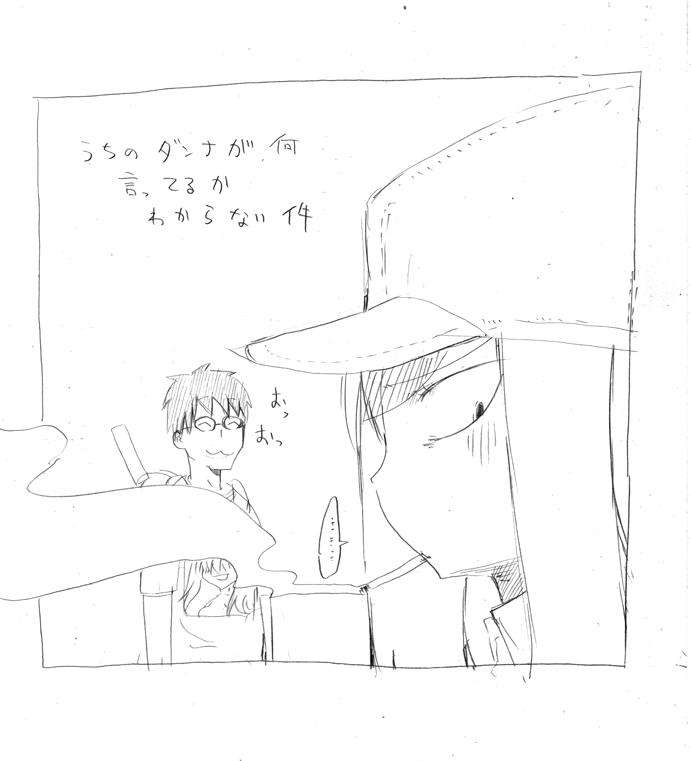 うちのダンナが何
言ってるか
わからない件
おっ
おっ
…